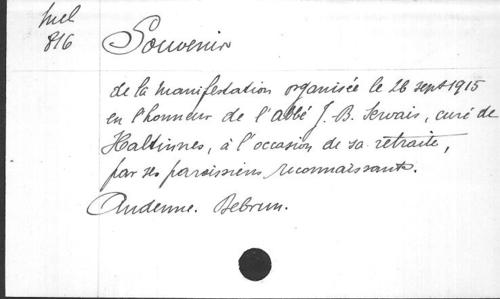 Mel
816
Souvenir
de la manifestation organisée le 26 sept 1915
en l'honneur de l'abbé J. B. Servais, curé de
Haltinnes, à l'occasion de sa retraite,
par ses paroissiens reconnaissants.
Andenne. Debrun.